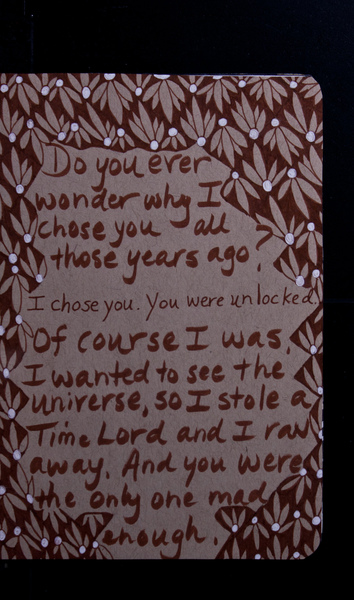 Do you ever
wonder why I
chose you all
those years ago?
I chose you. You were unlocked.
Of course I was.
I wanted to see the
universe, so I stole a
Time Lord and I ran
away. And you were
the only one mad
enough.